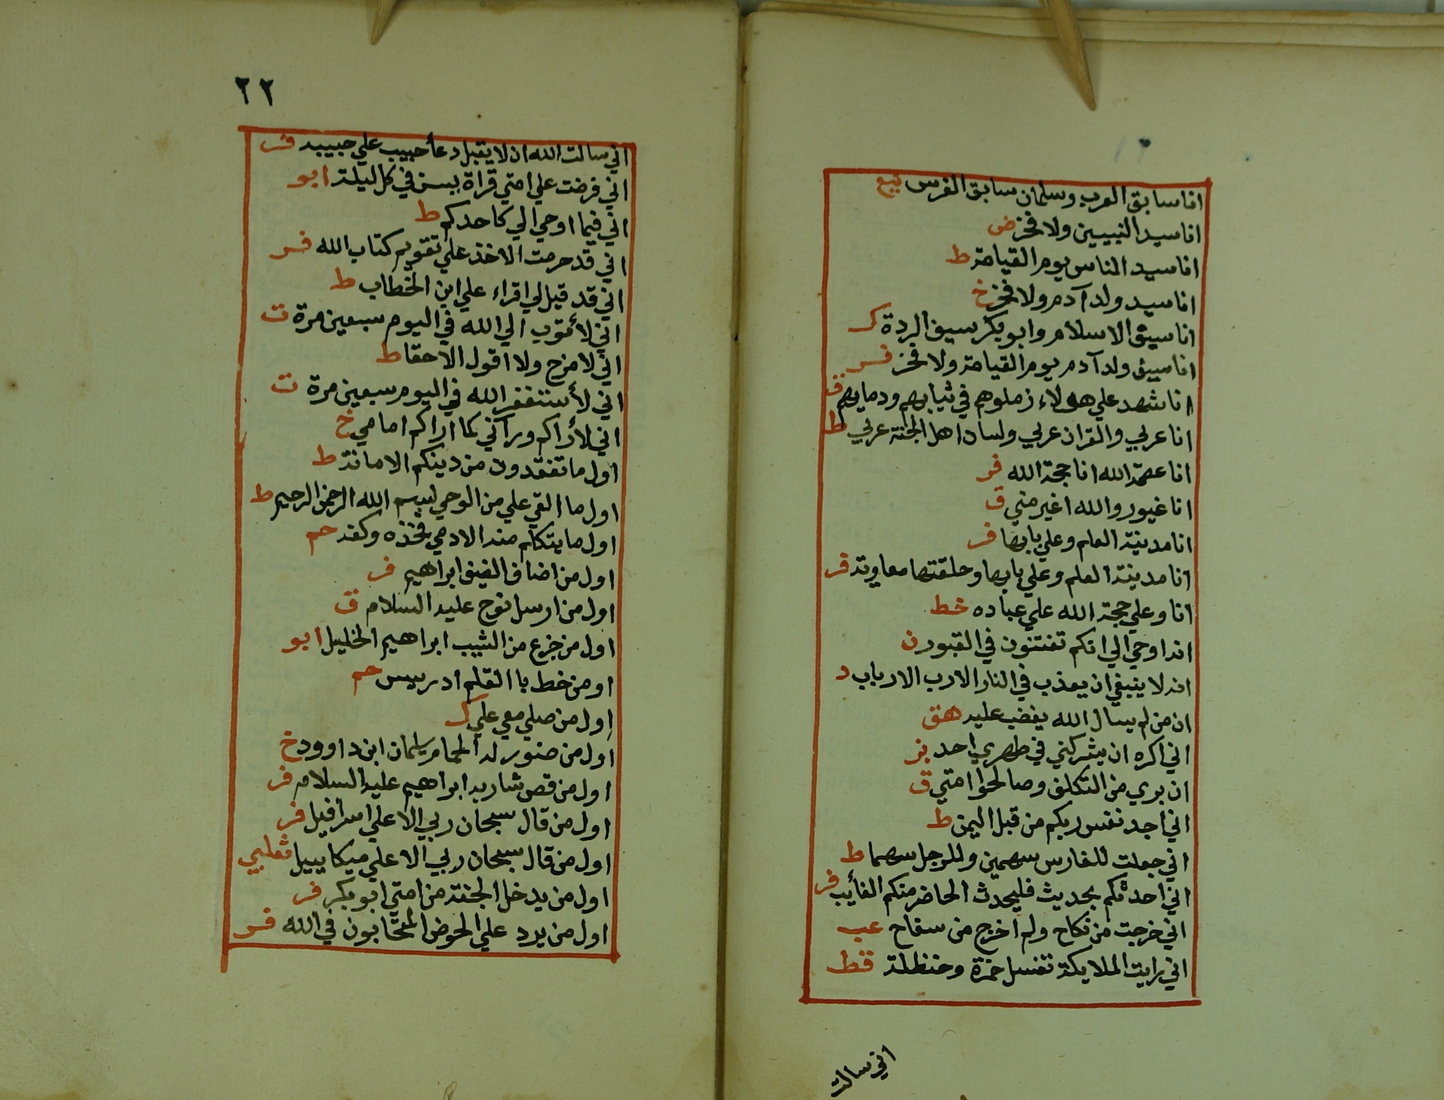 انا سابق العرب وسلمان سابق الفرس
انا سيد النبيين ولا فخر ض
انا سيد الناس يوم القيامة ط
انا سيد ولد آدم ولا فخر خ
انا سيف الاسلام وابو بكر سيف الردة ك
انا سيد ولد آدم يوم القيامة ولا فخر فر
انا شهد علي هولاء زملوهم في ثيابهم ودمايهم ق
انا عربي والقران عربي ولسان اهل الجنة عربي ط
انا عصمة الله انا حجة الله فر
انا غيور والله اغير مني ق
انا مدينة العلم وعلي بابها فر
انا مدينة العلم وعلي بابها وحلقتها معاوية فر
انا وعلي حجة الله علي عباده خط
انه اوحي الي انكم تفتنون في القبور ن
انه لا ينبغي ان يعذب في النار الا رب الارباب د
ان من لم يسال الله يغضب عليه هق
اني اكره ان يشركني في طهري احد بز
ان بري من التكلف وصالحوا امتي ق
اني اجد نفس ربكم من قبل اليمن ط
اني جعلت للفارس سهمين وللرجل سهما ط
اني احدثكم بحديث فليحدث الحاضر منكم الغايب فر
اني خرجت من نكاح ولم اخرج من سفاح عب
اني رايت الملايكة تغسل حمزة وحنظلة قط
اني سالت
٢٢
اني سالت الله ان لا يقبل دعأ حبيب علي حبيبه فر
اني فرضت علي امتي قراة يس في كل ليلة ابو
اني فيما اوحي الي كاحدكم ط
اني قد حرمت الاخذ علي تقويم كتاب الله فر
اني قد قيل لي اقراء علي ابن الخطاب ط
اني لأتوب الي الله في اليوم سبعين مرة ت
اني لامزح ولا اقول الا حقا ط
اني لأستغفر الله في اليوم سبعين مرة ت
اني لأراكم ورآئي كما اراكم امامي خ
اول ما تفقدون من دينكم الامانة ط
اول ما القي علي من الوحي بسم الله الرحمن الرحيم ط
اول ما يتكلم منه الادمي فخذه وكفه حم
اول من اضاف الضيف ابراهيم فر
اول من ارسل نوح عليه السلام ق
اول من جزع من الشيب ابراهيم الخليل ابو
او من خط با القلم ادريس حم
اول من صلي معي علي ك
اول من صنور له الحمام سليمان ابن داوود خ
اول من قص شاربه ابراهيم عليه السلام فر
اول من قال سبحان ربي الاعلي اسرافيل فر
اول من قال سبحان ربي الاعلي ميكاييل ثعلبي
اول من يدخل الجنة من امتي ابو بكر فر
اول من يرد علي الحوض المتحابون في الله فر